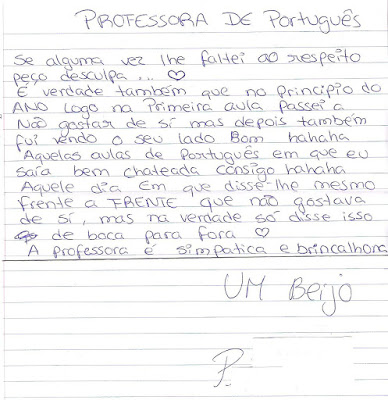 PROFESSORA DE Português
Se alguma vez lhe faltei ao respeito
peço desculpa... ♡
É verdade também que no principio do
ANO Logo na Primeira aula Passei a
Não gostar de sí mas depois também
fui vendo o seu lado Bom hahaha
Aquelas aulas de Português em que eu
saía bem chateada consigo hahaha
Aquele dia Em que disse-lhe mesmo
frente a FRENTE que não gostava
de sí, mas na verdade só disse isso
de boca para fora ♡
A professora é simpatica e brincalhona
UM Beijo
P.